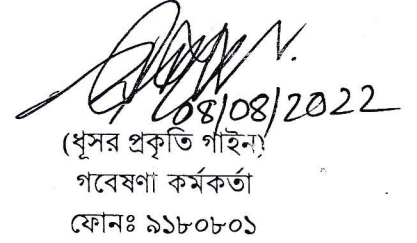 08/08/2022
(ধূসর প্রকৃতি গাইন)
গবেষণা কর্মকর্তা
ফোনঃ ৯১৮০৮০১